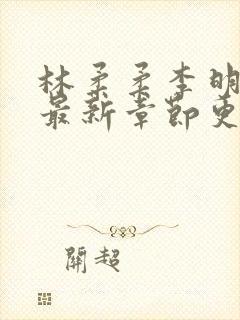 林柔柔李明
最新章節更
開超